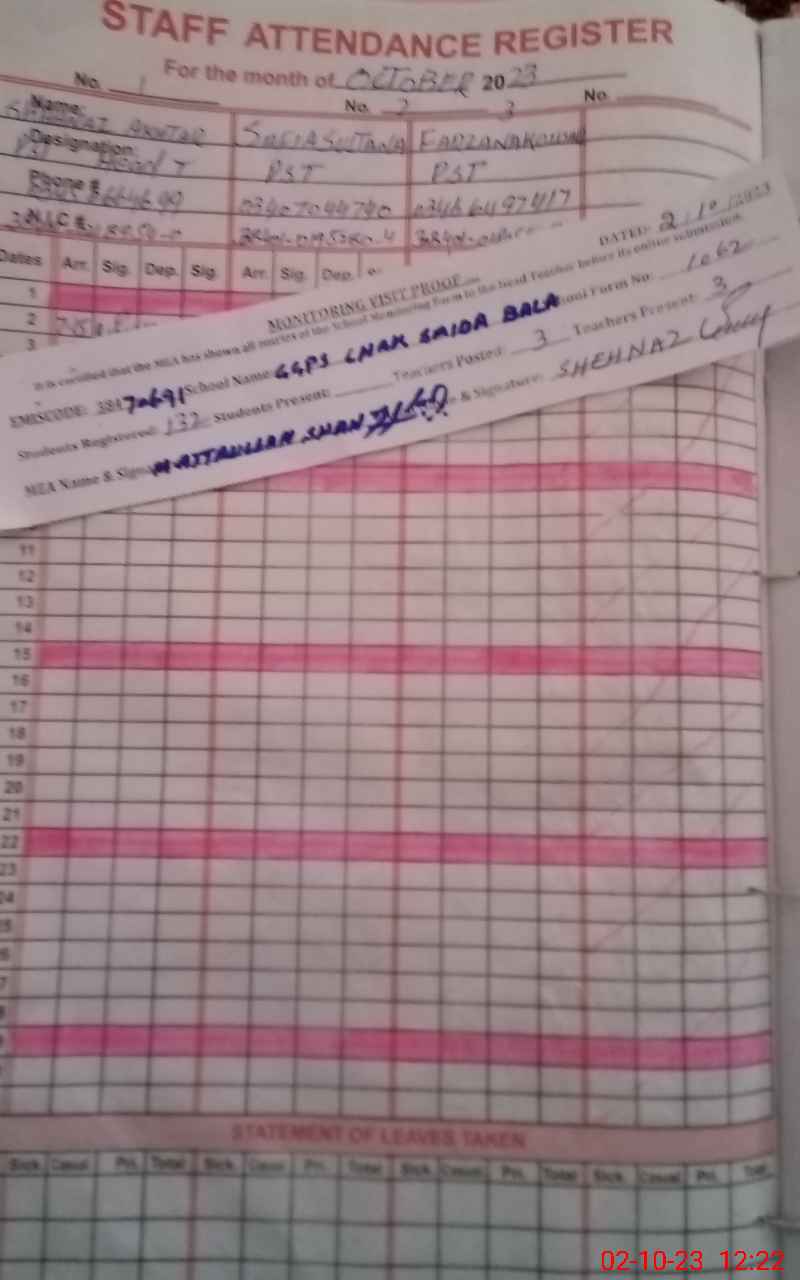 STAFF ATTENDANCE REGISTER
For the month of OCTOBER 2023
No. 1 No. 2 3 No.
Name: SHEHNAZ AKHTAR SOFIA SULTANA
Designation: PST Head T PST PST
Phone # 03407044740 03466497417
N.I.C #
Dates Arr. Sig. Dep. Sig. Arr. Sig. Dep.
1
2
3
MONITORING VISIT PROOF DATED: 2/10/2023
It is certified that the MEA has shown all entries of the School Monitoring Form to the Head Teacher before its online submission.
EMISCODE: 38470691 School Name GGPS CHAK SAIDA BALA School Form No: 1062
Students Registered: 132 Students Present: Teachers Posted: 3 Teachers Present: 3
MEA Name & Sign & Signature: SHEHNAZ
11
12
13
14
15
16
17
18
19
20
21
22
23
24
STATEMENT OF LEAVES TAKEN
Sick. Casual Pri. Total Sick. Casual Pri. Total Sick. Casual Pri. Total Sick. Casual Pri. Total
02-10-23 12:22